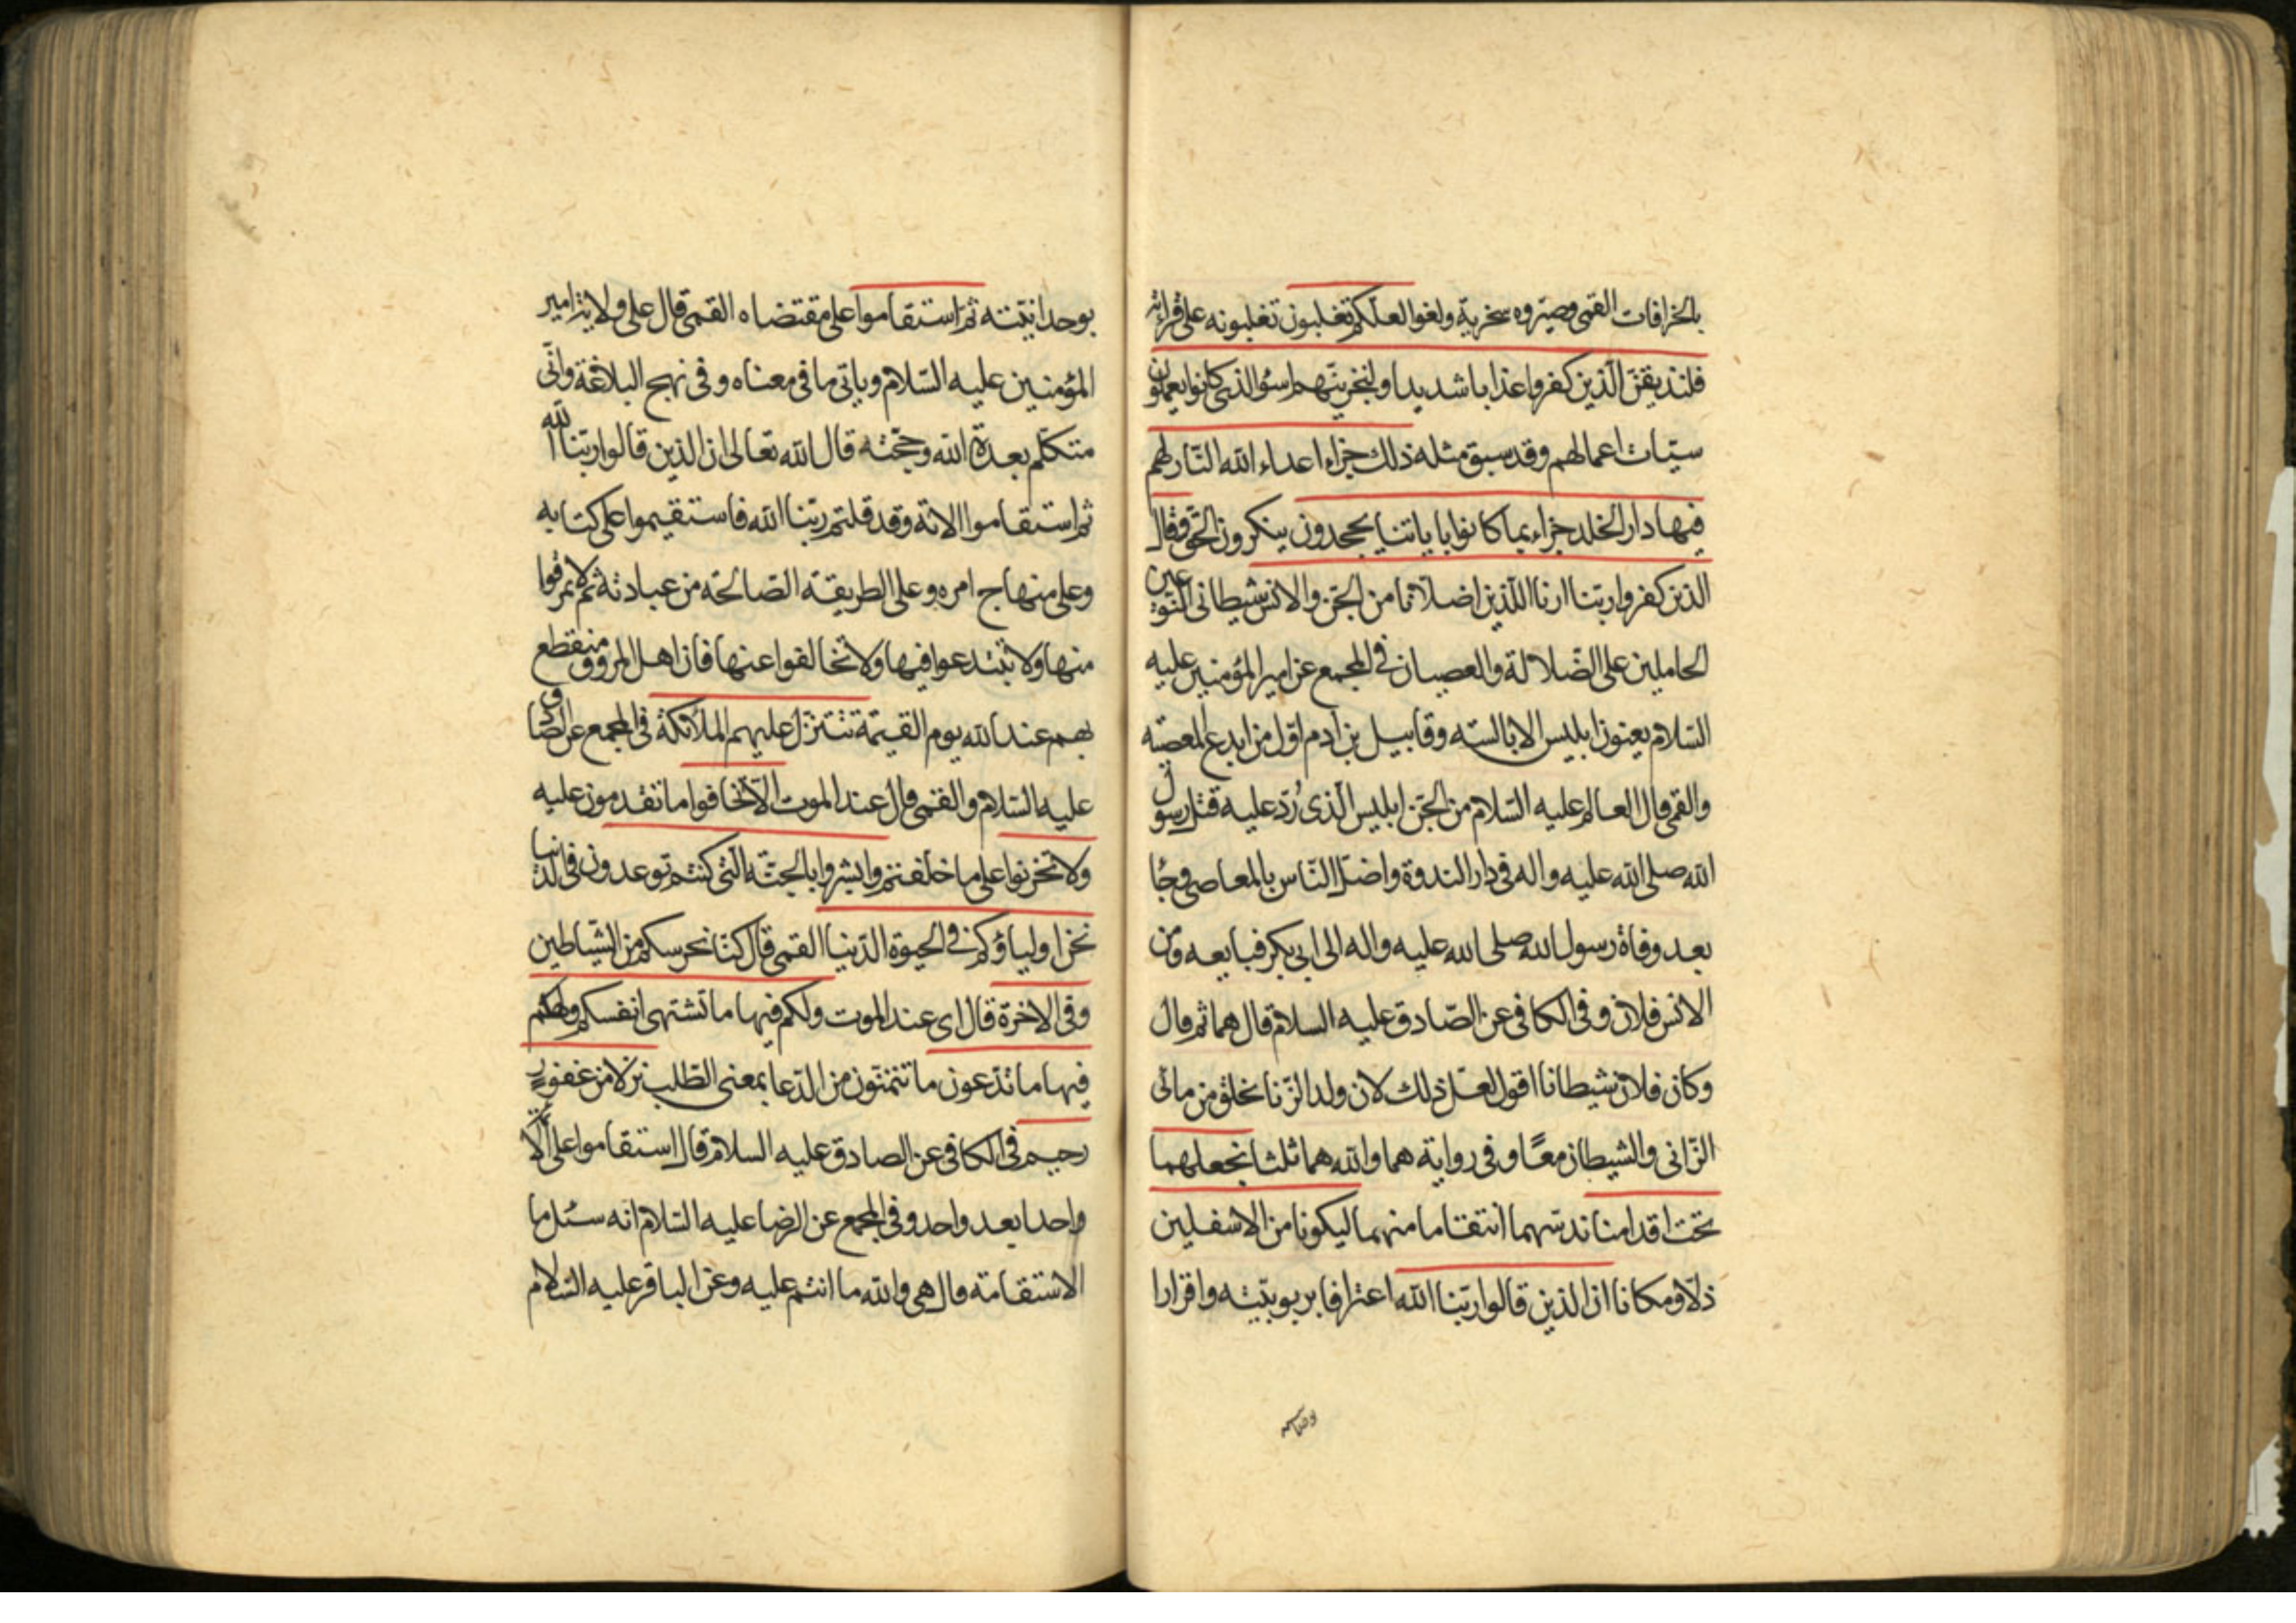 بالخرافات القمى وصيّروه سخرية ولغوا لعلّكم تغلبون تغلبونه على قرائته
فلنذيقنّ الّذين كفروا عذابا شديدا ولنجزينّهم اسؤ الذى كانوا يعملون
سيّات اعمالهم وقد سبق مثله ذلك جزاء اعداء الله النّار لهم
فيها دار الخلد جزاء بما كانوا باياتنا يجحدون ينكرون الحق وقال
الذين كفروا ربّنا ارنا اللّذين اضلّانا من الجنّ والانس شيطانى النّوعين
الحاملين على الضّلالة والعصيان فى المجمع عن امير المؤمنين عليه
السّلام يعنون ابليس الابالسه وقابيل بن ادم اوّل من ابدع المعصيّه
والقمى قال العالم عليه السّلام من الجنّ ابليس الّذى رُدّ عليه قتل رسول
الله صلى الله عليه واله فى دار الندوة واضلّ النّاس بالمعاصى وجاُ
بعد وفاة رسول الله صلى الله عليه واله الى ابى بكر فبايعه ومن
الانس فلان وفى الكافى عن الصّادق عليه السلام قال هما ثم قال
وكان فلان شيطانا اقول لعلّ ذلك لان ولد الزّنا يخلق من مائى
الزّانى والشيطان معًا وفى رواية هما والله هما ثلثا نجعلهما
تحت اقدامنا ندسّهما انتقاما منهما ليكونا من الاسفلين
ذلّا ومكانا ان الذين قالوا ربّنا الله اعترافا بربوبيّته واقرارا
بوحدانيّته ثم استقاموا على مقتضاه القمى قال على ولاية امير
المؤمنين عليه السّلام وياتى ما فى معناه وفى نهج البلاغة وانّى
متكلّم بعدة الله وحجّته قال الله تعالى ان الذين قالوا ربّنا الله
ثم استقاموا الاية وقد قلتم ربّنا الله فاستقيموا على كتابه
وعلى منهاج امره وعلى الطريقة الصّالحة من عبادته ثم لا تمرقوا
منها ولا تبتدعوا فيها ولا تخالفوا عنها فان اهل المروق منقطع
بهم عند الله يوم القيمة تتنزّل عليهم الملائكة فى المجمع عن الصّادق
عليه السّلام والقمى قال عند الموت الّا تخافوا ما تقدمون عليه
ولا تحزنوا على ما خلفتم وابشروا بالجنّة الّتى كنتم توعدون فى الدنيا
نحن اولياؤكم فى الحيوة الدّنيا القمى قال كنّا نحرسكم من الشّياطين
وفى الاخرة قال اى عند الموت ولكم فيها ما تشتهى انفسكم ولكم
فيها ما تدّعون ما تتمنّون من الدّعا بمعنى الطّلب نزلا من غفور
رحيم فى الكافى عن الصادق عليه السلام قال استقاموا على الائمّة
واحدا بعد واحد وفى المجمع عن الرضا عليه السّلام انه سئل ما
الاستقامة قال هى والله ما انتم عليه وعن الباقر عليه السّلام